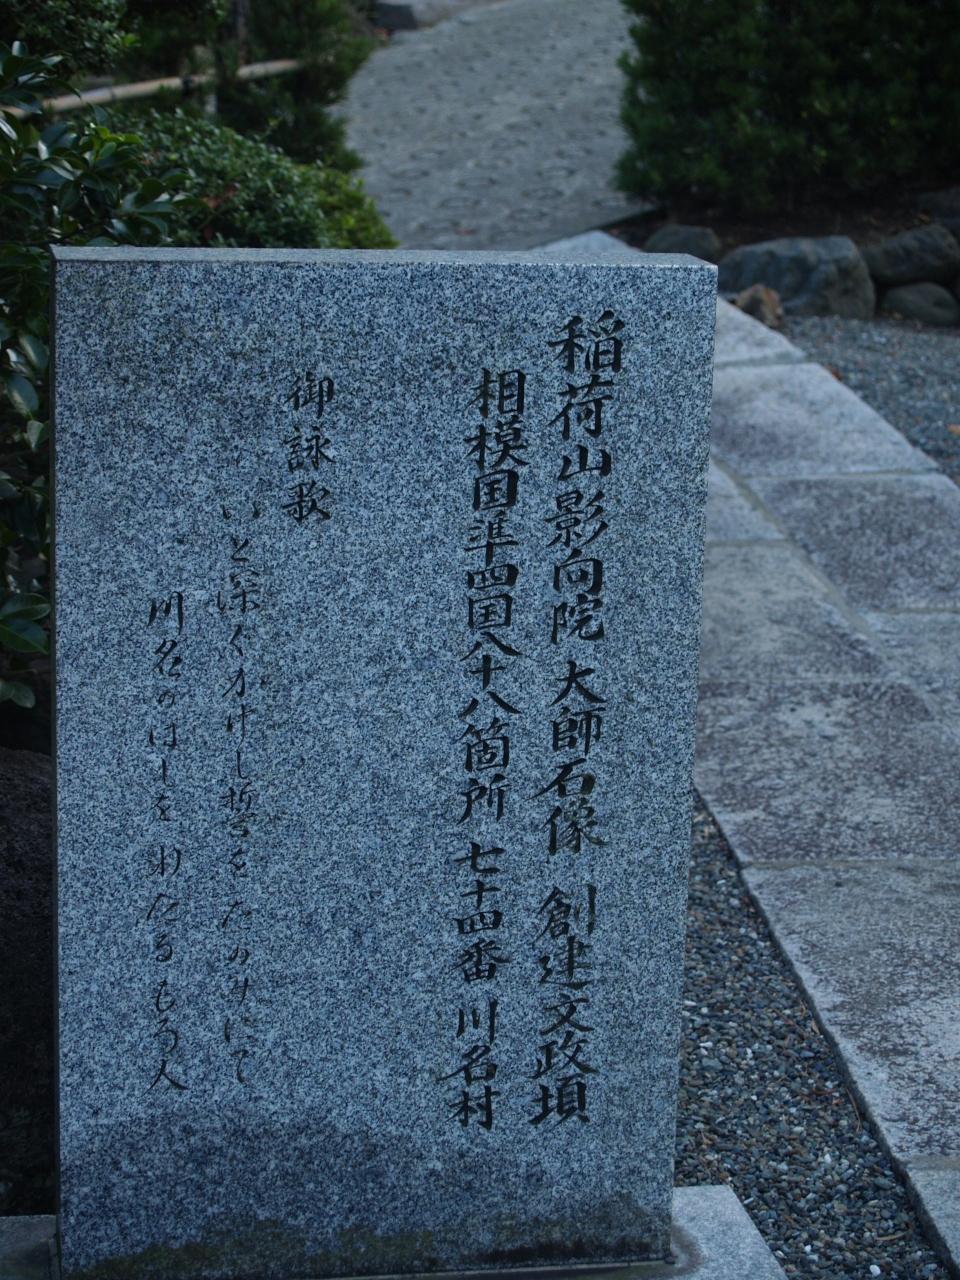 稲荷山影向院 大師石像 創建文政頃
相模国準四国八十八箇所 七十四番 川名村
御詠歌
いと深くかけし誓をたのみにて
川名のはしをわたるもろ人